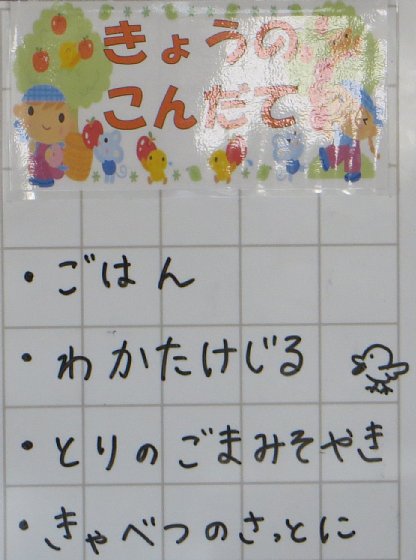 きょうの
こんだて
・ごはん
・わかたけじる
・とりのごまみそやき
・きゃべつのさっとに